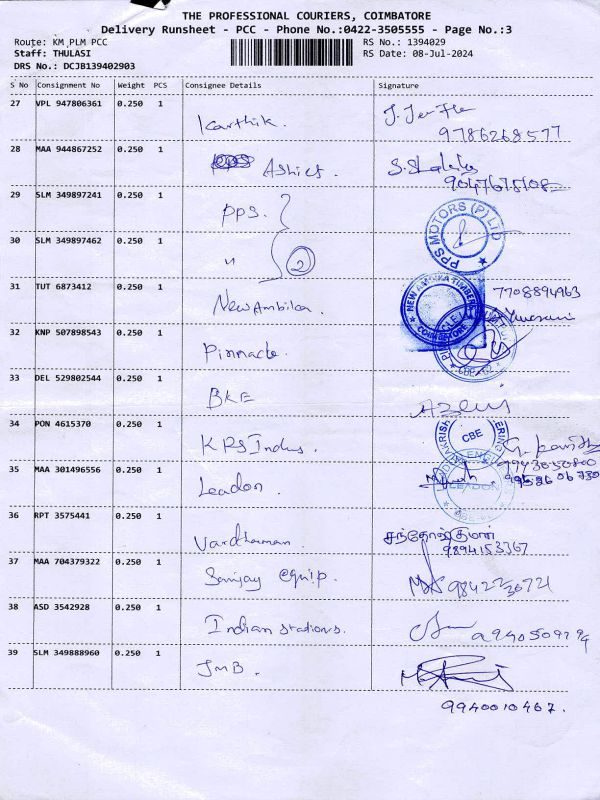 THE PROFESSIONAL COURIERS, COIMBATORE
Delivery Runsheet - PCC - Phone No.:0422-3505555 - Page No.:3
Route: KM PLM PCC RS No.: 1394029
Staff: THULASI RS Date: 08-Jul-2024
DRS No.: DCJB139402903
S No Consignment No Weight PCS Consignee Details Signature
27 VPL 947806361 0.250 1 Karthik.
9786268577
28 MAA 944867252 0.250 1
29 SLM 349897241 0.250 1 PPS.
PPS MOTORS (P) LTD
30 SLM 349897462 0.250 1 " 2
31 TUT 6873412 0.250 1 New Ambika. NEW AMBIKA TIMBERS COIMBATORE 7708894963
32 KNP 507898543 0.250 1 Pinnacle.
33 DEL 529802544 0.250 1 BKE
34 PON 4615370 0.250 1 KRS Indus. CBE
35 MAA 301496556 0.250 1 Leadon. LEADON
36 RPT 3575441 0.250 1 Vardhaman
9894153367
37 MAA 704379322 0.250 1 Sanjay equip.
38 ASD 3542928 0.250 1 Indian stations.
39 SLM 349888960 0.250 1 JMB.
9940010467.